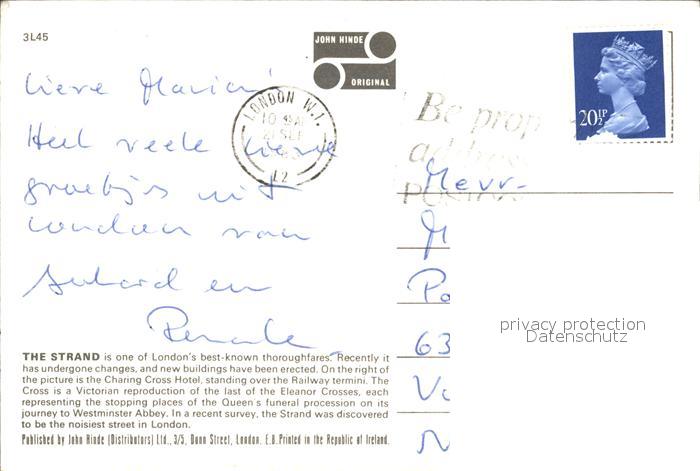 3L45
JOHN HINDE
ORIGINAL
LONDON W.1.
21 SEP
12
20½P
Be prop
POSTCO
Lieve
Heel vele lieve
groetjes uit
London van
en
Renate
Mevr.
M
Po
63
N
privacy protection
Datenschutz
THE STRAND is one of London's best-known thoroughfares. Recently it
has undergone changes, and new buildings have been erected. On the right of
the picture is the Charing Cross Hotel, standing over the Railway termini. The
Cross is a Victorian reproduction of the last of the Eleanor Crosses, each
representing the stopping places of the Queen's funeral procession on its
journey to Westminster Abbey. In a recent survey, the Strand was discovered
to be the noisiest street in London.
Published by John Hinde (Distributors) Ltd., 3/5, Dunn Street, London. E.8. Printed in the Republic of Ireland.